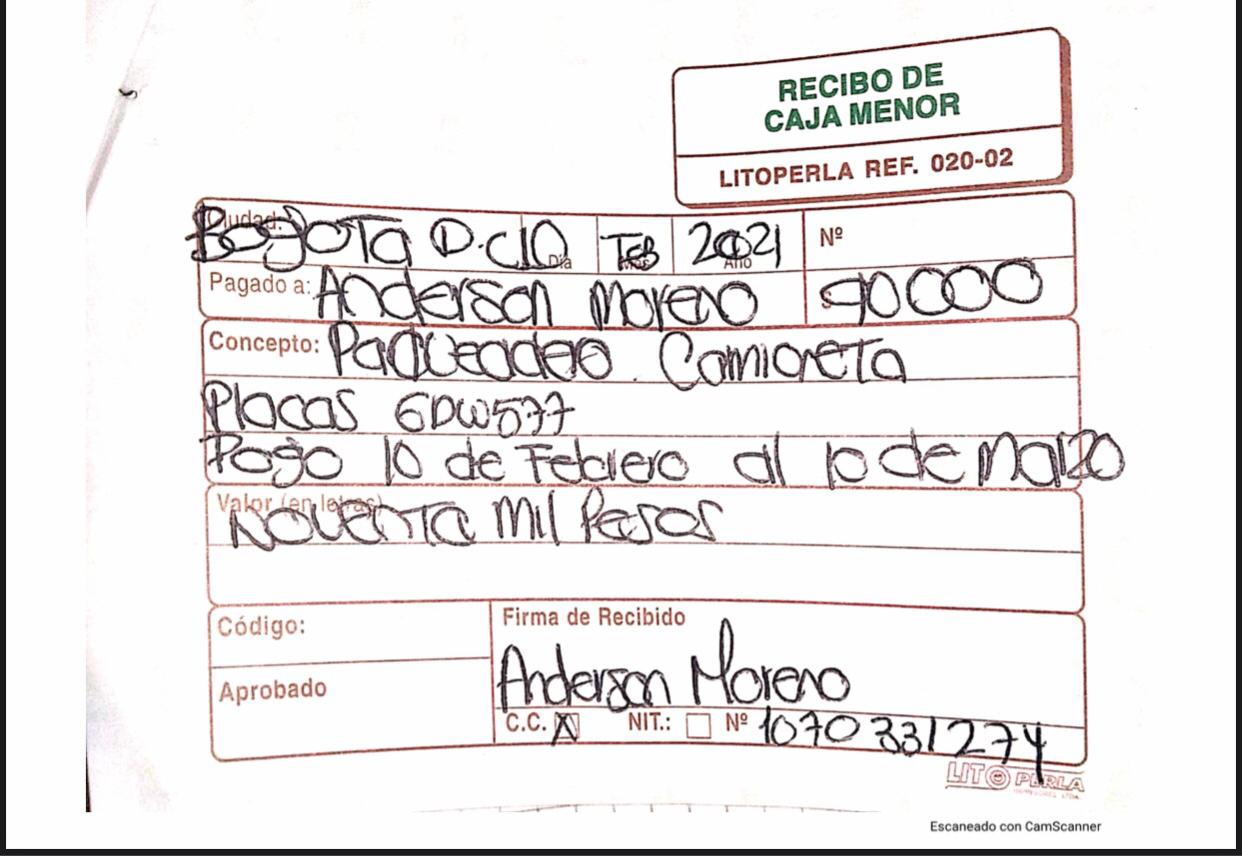 RECIBO DE
CAJA MENOR
LITOPERLA REF. 020-02
Ciudad: Bogota D.C 10 Día Feb Mes 2021 Año Nº
Pagado a: Anderson Moreno $ 90000
Concepto: Parqueadero Camioneta
Placas GDW577
Pago 10 de Febrero al 10 de Marzo
Valor (en letras)
Noventa Mil Pesos
Código:
Firma de Recibido
Aprobado
Anderson Moreno
C.C. X NIT.: Nº 1070331274
LITOPERLA
Escaneado con CamScanner